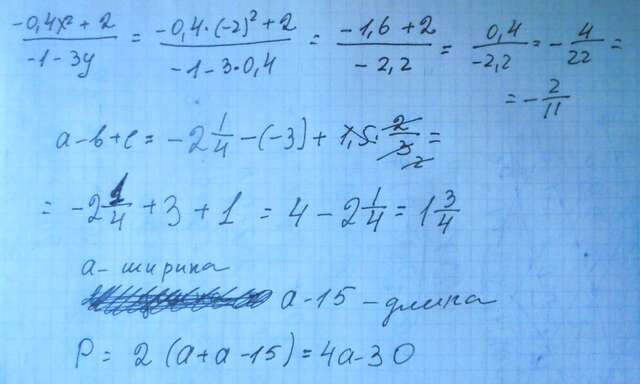 (-0,4x² + 2)/(-1-3y) = (-0,4·(-2)² + 2)/(-1-3·0,4) = (-1,6 + 2)/(-2,2) = 0,4/(-2,2) = -4/22 =
= -2/11
a-b+c = -2 1/4 - (-3) + 1,5 · 2/3 =
= -2 1/4 + 3 + 1 = 4 - 2 1/4 = 1 3/4
a - ширина
a - 15 - длина
P = 2 (a+a-15) = 4a-30